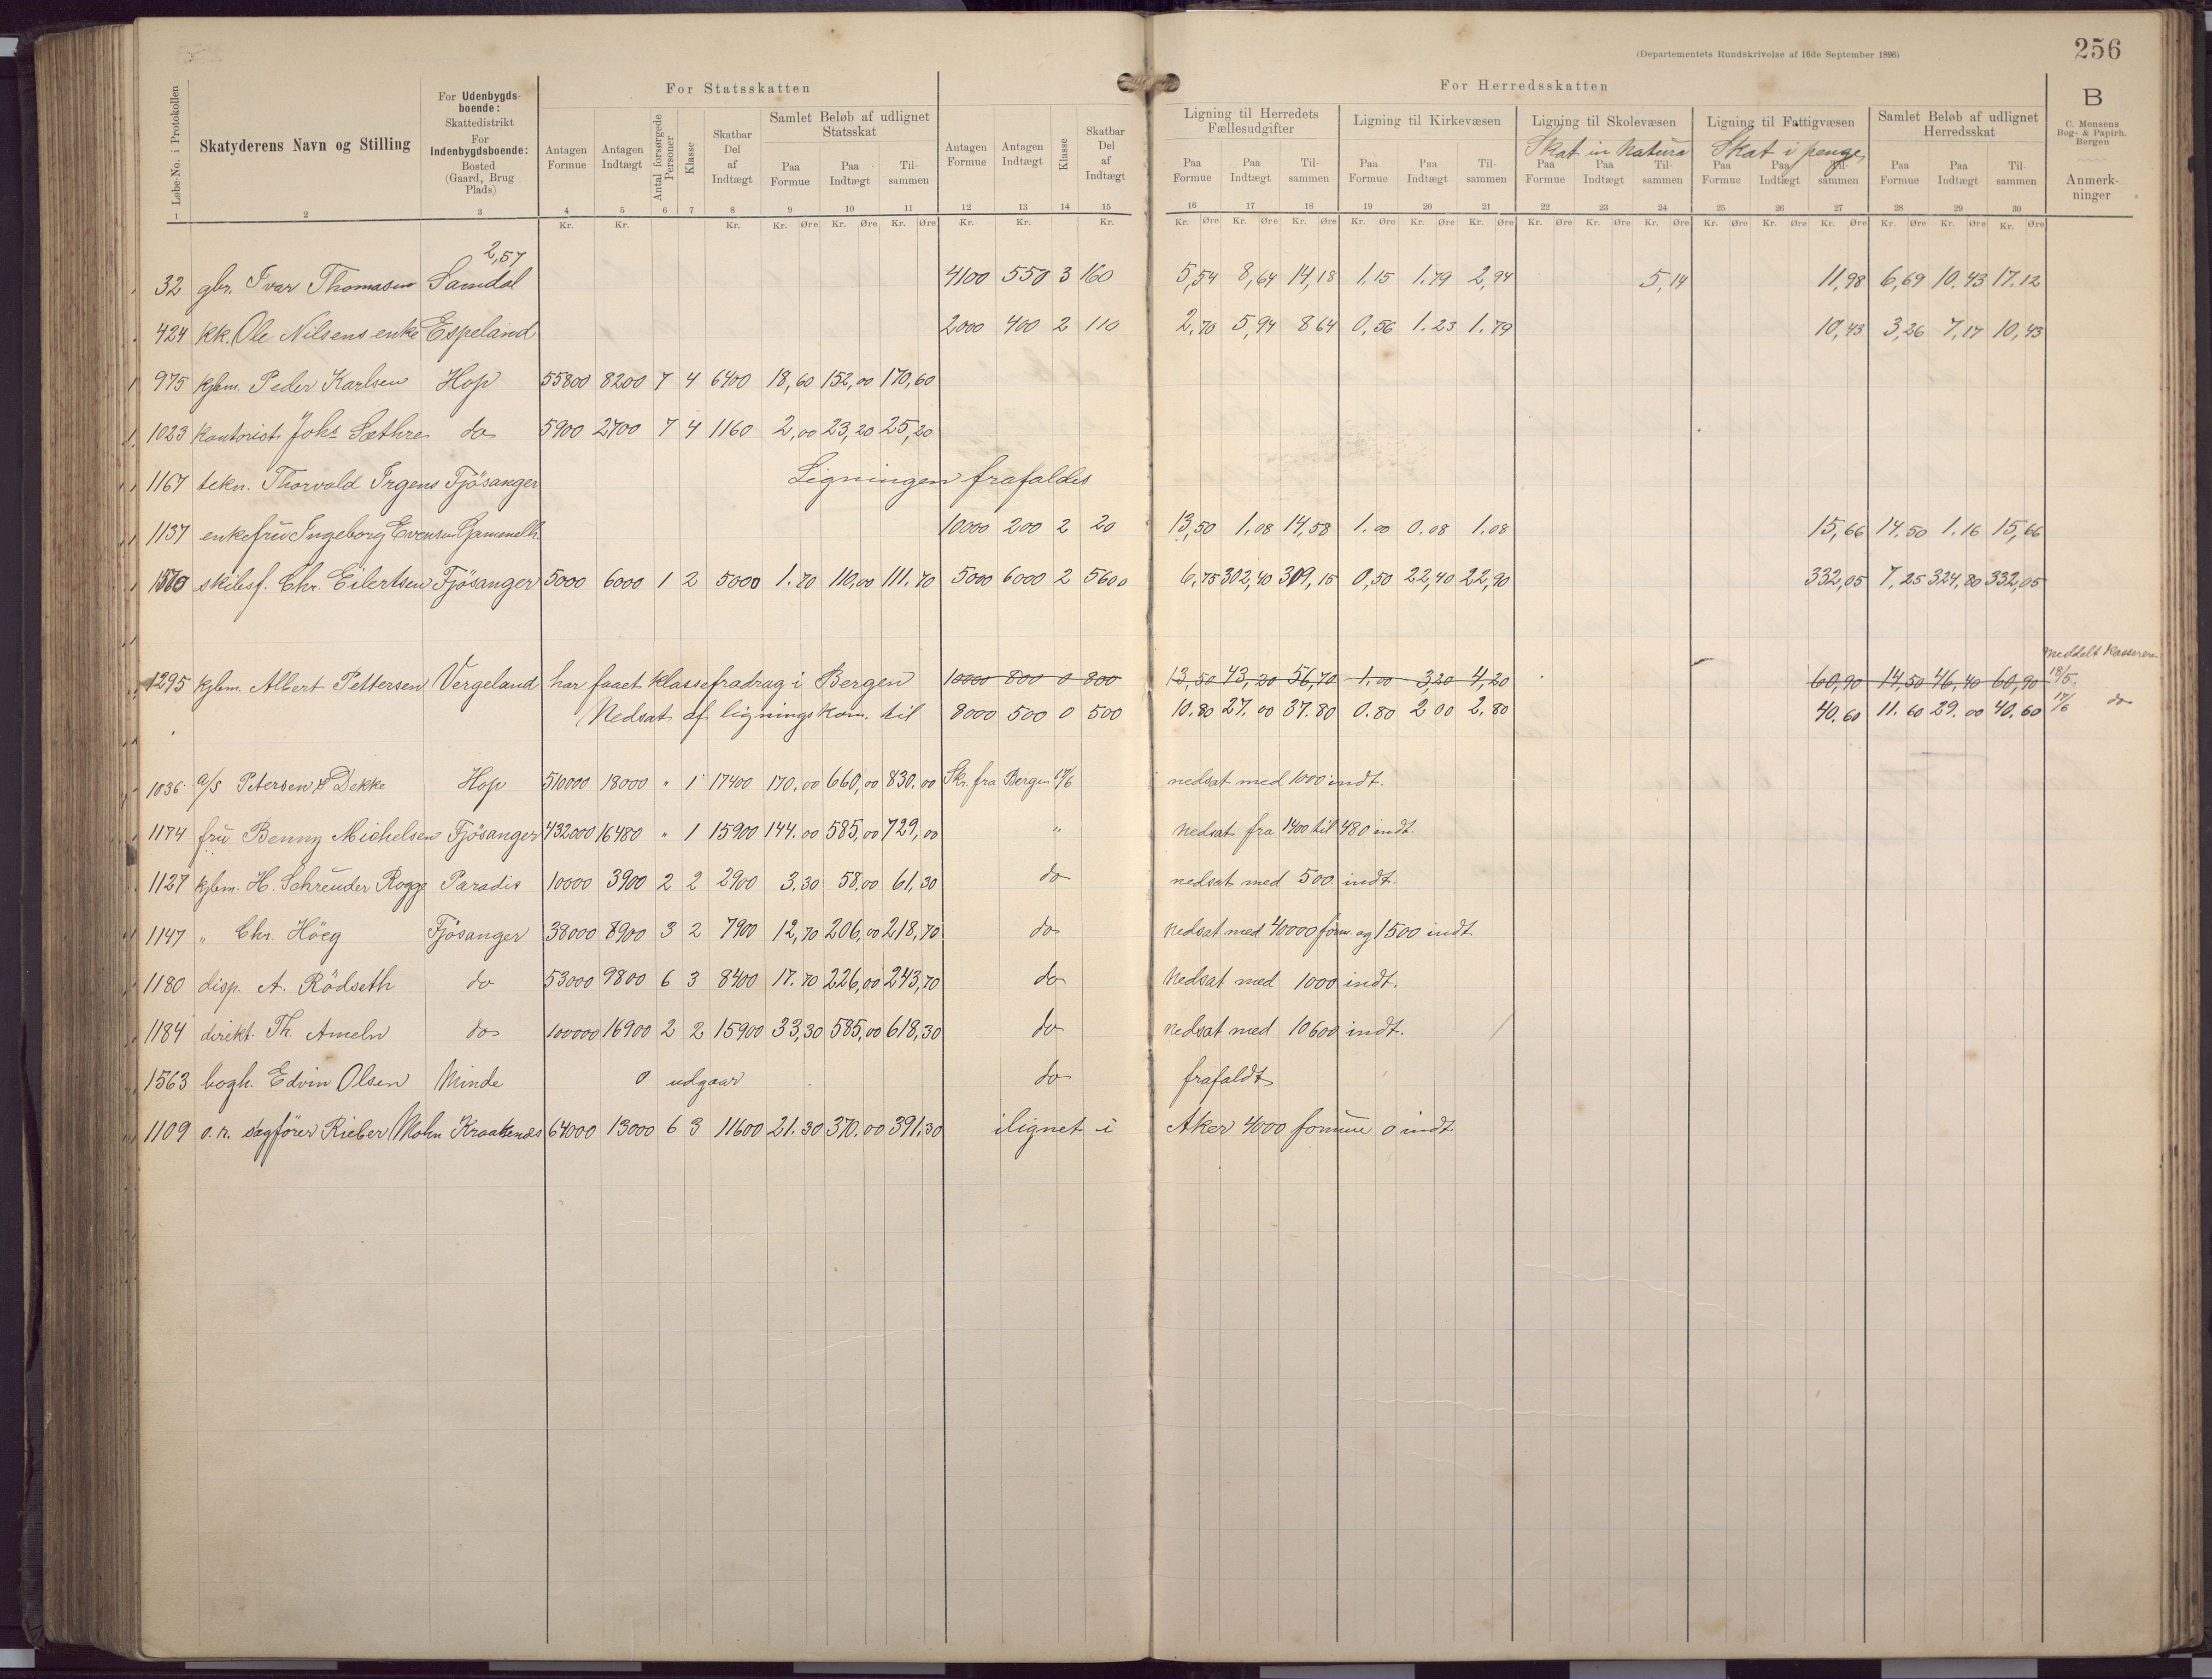 (Departementets Rundskrivelse af 16de September 1896)
256
Løbe-No. i Protokollen
Skatyderens Navn og Stilling
For Udenbygdsboende: Skattedistrikt For Indenbygdsboende: Bosted (Gaard, Brug Plads)
For Statsskatten
For Herredsskatten
B
C. Monsens Bog- & Papirh. Bergen
Anmerkninger
Antagen Formue
Antagen Indtægt
Antal forsørgede Personer
Klasse
Skatbar Del af Indtægt
Samlet Beløb af udlignet Statsskat
Paa Formue
Paa Indtægt
Tilsammen
Antagen Formue
Antagen Indtægt
Klasse
Skatbar Del af Indtægt
Ligning til Herredets Fællesudgifter
Paa Formue Paa Indtægt Tilsammen
Ligning til Kirkevæsen
Paa Formue Paa Indtægt Tilsammen
Ligning til Skolevæsen
Skat in Natura
Paa Formue Paa Indtægt Tilsammen
Ligning til Fattigvæsen
Skat i penge
Paa Formue Paa Indtægt Tilsammen
Samlet Beløb af udlignet Herredsskat
Paa Formue Paa Indtægt Tilsammen
1 2 3 4 5 6 7 8 9 10 11 12 13 14 15 16 17 18 19 20 21 22 23 24 25 26 27 28 29 30
Kr. Kr. Kr. Kr. Øre Kr. Øre Kr. Øre Kr. Kr. Kr. Kr. Øre Kr. Øre Kr. Øre Kr. Øre Kr. Øre Kr. Øre Kr. Øre Kr. Øre Kr. Øre Kr. Øre Kr. Øre Kr. Øre Kr. Øre Kr. Øre Kr. Øre
2,57
32 gbr. Ivar Thomasen Samdal 4100 550 3 160 5,54 8,64 14,18 1.15 1.79 2,94 5,14 11,98 6,69 10.43 17.12
424 kk. Ole Nilsens enke Espeland 2000 400 2 110 2,70 5,94 8 64 0,56 1.23 1.79 10,43 3,26 7,17 10,43
975 kjbm. Peder Karlsen Hop 55800 8200 7 4 6400 18,60 152,00 170,60
1023 kontorist Johs Sæthre do 5900 2700 7 4 1160 2,00 23,20 25,20
1167 tekn. Thorvald Irgens Fjösanger Ligningen frafaldes
1137 enkefru Ingeborg Evensen Gamenelh. 10000 200 2 20 13,50 1.08 14,58 1.00 0.08 1.08 15,66 14.50 1.16 15,66
1570 skibsf. Chr. Eilertsen Fjösanger 5000 6000 1 2 5000 1.70 110,00 111.70 5000 6000 2 5600 6,75 302,40 309,15 0,50 22,40 22,90 332,05 7,25 324,80 332,05
Meddelt Kassereren
1295 kjbm. Albert Pettersen Vergeland har faaet klassefradrag i Bergen 10000 800 0 800 13,50 43,20 56,70 1.00 3,20 4,20 60,90 14,50 46,40 60,90 18/5.
Nedsat af ligningskom. til 8000 500 0 500 10.80 27.00 37.80 0.80 2 00 2,80 40.60 11.60 29.00 40.60 17/6 do
1036 a/s Petersen & Dekke Hop 510000 18000 " 1 17400 170,00 660,00 830.00 Skr. fra Bergen 17/6 nedsat med 1000 indt.
1174 fru Benny Michelsen Fjösanger 432000 16480 " 1 15900 144.00 585,00 729,00 " Nedsat fra 1400 til 480 indt.
1127 kjbm. H. Schreuder Rogge Paradis 10000 3900 2 2 2900 3.30 58.00 61,30 do nedsat med 500 indt.
1147 " Chr. Höeg Fjösanger 38000 8900 3 2 7900 12,70 206,00 218,70 do Nedsat med 40000 form. og 1500 indt.
1180 disp. A. Rödseth do 53000 9800 6 3 8400 17.70 226,00 243,70 do Nedsat med 1000 indt.
1184 direkt. Th. Ameln do 100000 16900 2 2 15900 33,30 585,00 618,30 do Nedsat med 10600 indt.
1563 bogh. Edvin Olsen Minde 0 udgaar do frafaldt
1109 o.r. sagförer Rieber Mohn Kraakenes 64000 13000 6 3 11600 21.30 370.00 391.30 ilignet i Aker 4000 formue 0 indt.